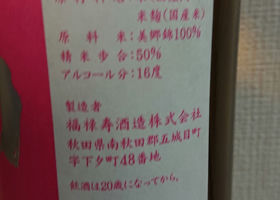 米麹(国産米)
原料米:美郷錦100%
精米歩合:50%
アルコール分:16度
製造者
福禄寿酒造株式会社
秋田県南秋田郡五城目町
字下夕町48番地
飲酒は20歳になってから。